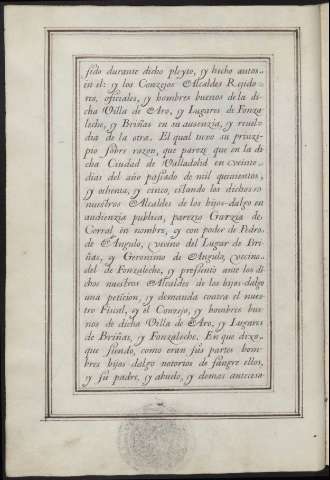 sido durante dicho pleyto, y hecho autos
en el: y los Conzejos Alcaldes Rejido
res, oficiales, y hombres buenos de la di
cha Villa de Aro, y Lugares de Fonza
leche, y Briñas en su ausenzia, y revel
dia de la otra. El qual tuvo su prinzi
pio sobre razon, que pareze que en la di
cha Ciudad de Valladolid en veinte
dias del año pasado de mil quinientos,
y ochenta, y cinco, estando los dichos
nuestros Alcaldes de los hijos-dalgo en
audienzia publica, parezio Garzia de
Corral en nombre, y con poder de Pedro
de Angulo, vecino del Lugar de Bri
ñas, y Geronimo de Angulo, vecino
del de Fonzaleche, y presento ante los di
chos nuestros Alcaldes de los hijos-dalgo
una peticion, y demanda contra el nues
tro Fiscal, y el Conzejo, y hombres bue
nos de dicha Villa de Aro, y Lugares
de Briñas, y Fonzaleche. En que dixo,
que siendo, como eran sus partes hom
bres hijos dalgo notorios de sangre ellos,
y su padre, y abuelo, y demas antecesa